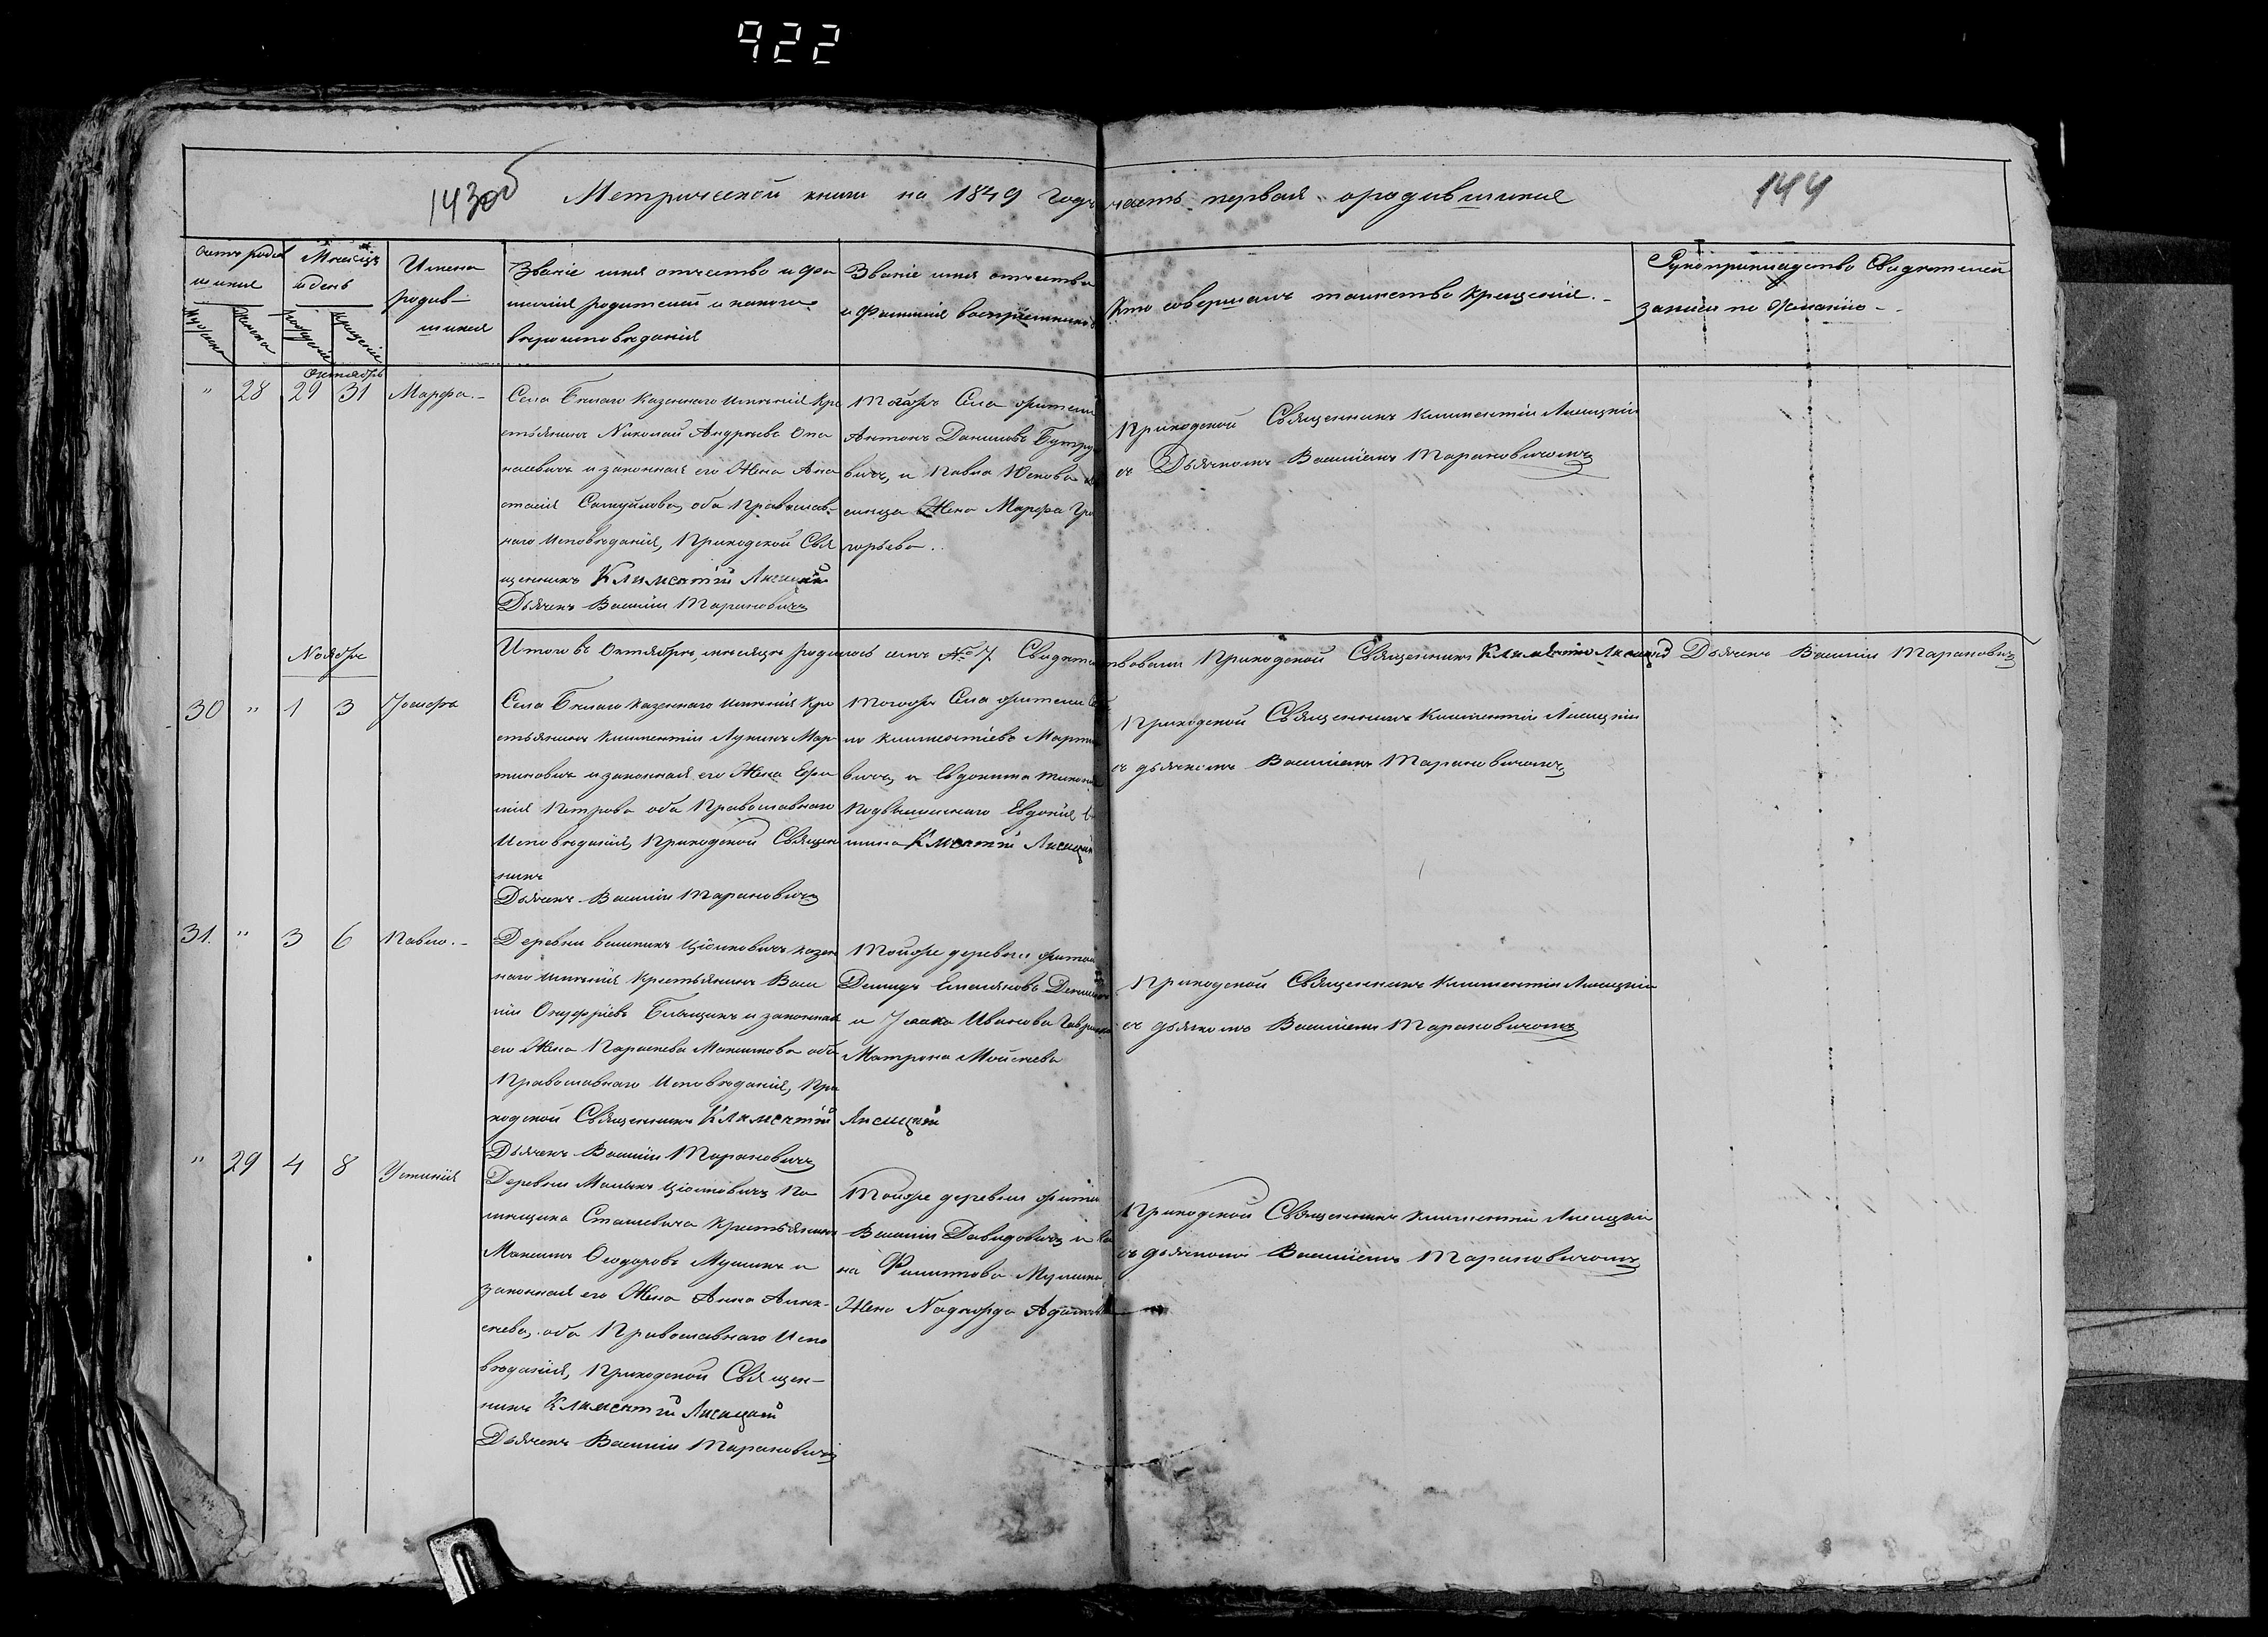 922
143об Метрической книги на 1849 годъ часть первая о родившихся 144
Счетъ родившихся
Мужеска
Женска
Мѣсяцъ и день
рожденія
крещенія
Имена родив-
шихся
Званіе имя отчество и фа
милія родителей и какого
вѣроисповѣданія
Званіе имя отчество
и фамилія воспріемниковъ
Кто совершалъ таинство крещенія.-
Рукоприкладство Свидѣтелей
записи по желанію -
Октябрь
" 28 29 31 Марфа.-
Села Бѣлаго Казеннаго Имѣнія Кре
стьянинъ Николай Андреевъ Опа
насевичъ и законная его Жена Ана
стасія Самуйлова, оба Православ-
наго Исповѣданія, Приходской Свя
щенникъ Климентій Лисицкій
Дьячекъ Василій Тарановичъ
Тогожъ Села жители
Антонъ Даниловъ Бутры
вичъ, и Павла
Жена Марфа Гри
горьева..
Приходской Священникъ Климентій Лисицкій
съ Дьячкомъ Василіемъ Тарановичомъ
Итого въ Октябрѣ мѣсяцѣ родилось семь № 7 Свидѣтельствовали Приходской Священникъ Климентій Лисицкій Дьячекъ Василій Тарановичъ
Ноябрь
30 " 1 3 Іосифъ
Села Бѣлаго Казеннаго Имѣнія Кре
стьянинъ Климентій Лукинъ Мар-
тиновичъ и законная его Жена Ефи
мія Петрова оба Православнаго
Исповѣданія, Приходской Священ
никъ
Дьячекъ Василій Тарановичъ
Тогожъ Села жители
Климентіевъ Марти
вичъ, и Евдокима
Евдокія
Климентій Лисицкій
Приходской Священникъ Климентій Лисицкій
съ дьячкомъ Василіемъ Тарановичомъ
31. " 3 6 Павло.-
Деревни Великихъ Цѣпковичъ казен
наго имѣнія Крестьянинъ Васи
лій Онуфріевъ и законная
его Жена Параскева Максимова оба
Православнаго Исповѣданія, При
ходской Священникъ Климентій Лисицкій
Дьячекъ Василій Тарановичъ
Тойже деревни жители
Демидъ Емеляновъ
и Исаака Иванова
Матрона Мойсеева
Приходской Священникъ Климентій Лисицкій
съ дьячкомъ Василіемъ Тарановичомъ
" 29 4 8 Устинія
Деревни Малыхъ Цѣпковичъ По
мѣщика Сташевича Крестьянинъ
Максимъ Ѳеодоровъ и
законная его Жена Анна Алек-
сѣева, оба Православнаго Испо
вѣданія, Приходской Священ-
никъ Климентій Лисицкій
Дьячекъ Василій Тарановичъ
Тойже деревни жители
Василій Давидовичъ и
на Филиппова
Жена Надежда Адамова
Приходской Священникъ Климентій Лисицкій
съ дьячкомъ Василіемъ Тарановичомъ